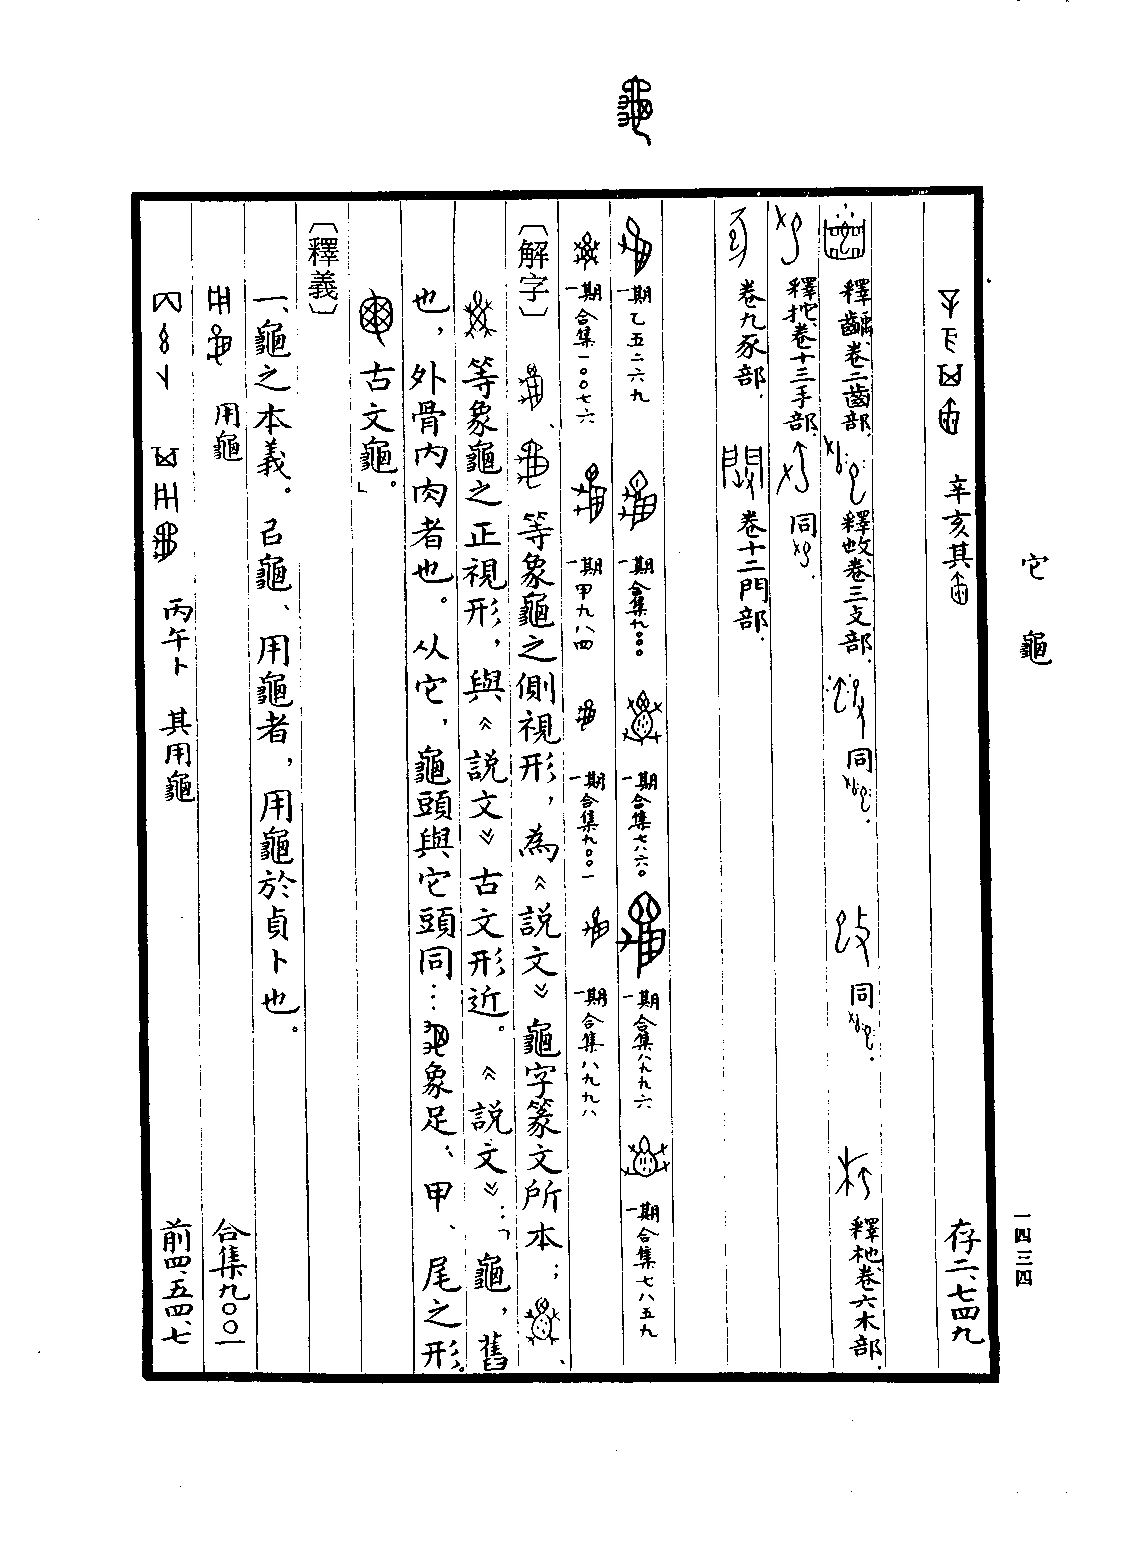 它 龜
一四三四
辛亥其 存二、七四九
釋齲卷二齒部. 釋𢻫卷三攴部. 同 . 同 . 釋杝卷六木部.
釋拕卷十三手部. 同 .
卷九豕部. 卷十二門部.
一期乙五二六九 一期合集九〇〇〇 一期合集七八六〇 一期合集八九九六 一期合集七八五九
一期合集一〇〇七六 一期甲九八四 一期合集九〇〇一 一期合集八九九八
〔解字〕 、 等象龜之側視形，為《說文》龜字篆文所本； 、
等象龜之正視形，與《說文》古文形近。《說文》：「龜，舊
也，外骨內肉者也。从它，龜頭與它頭同… 象足、甲、尾之形。
古文龜。」
〔釋義〕
一、龜之本義。㠯龜、用龜者，用龜於貞卜也。
用龜 合集九〇〇一
丙午卜 其用龜 前四、五四、七